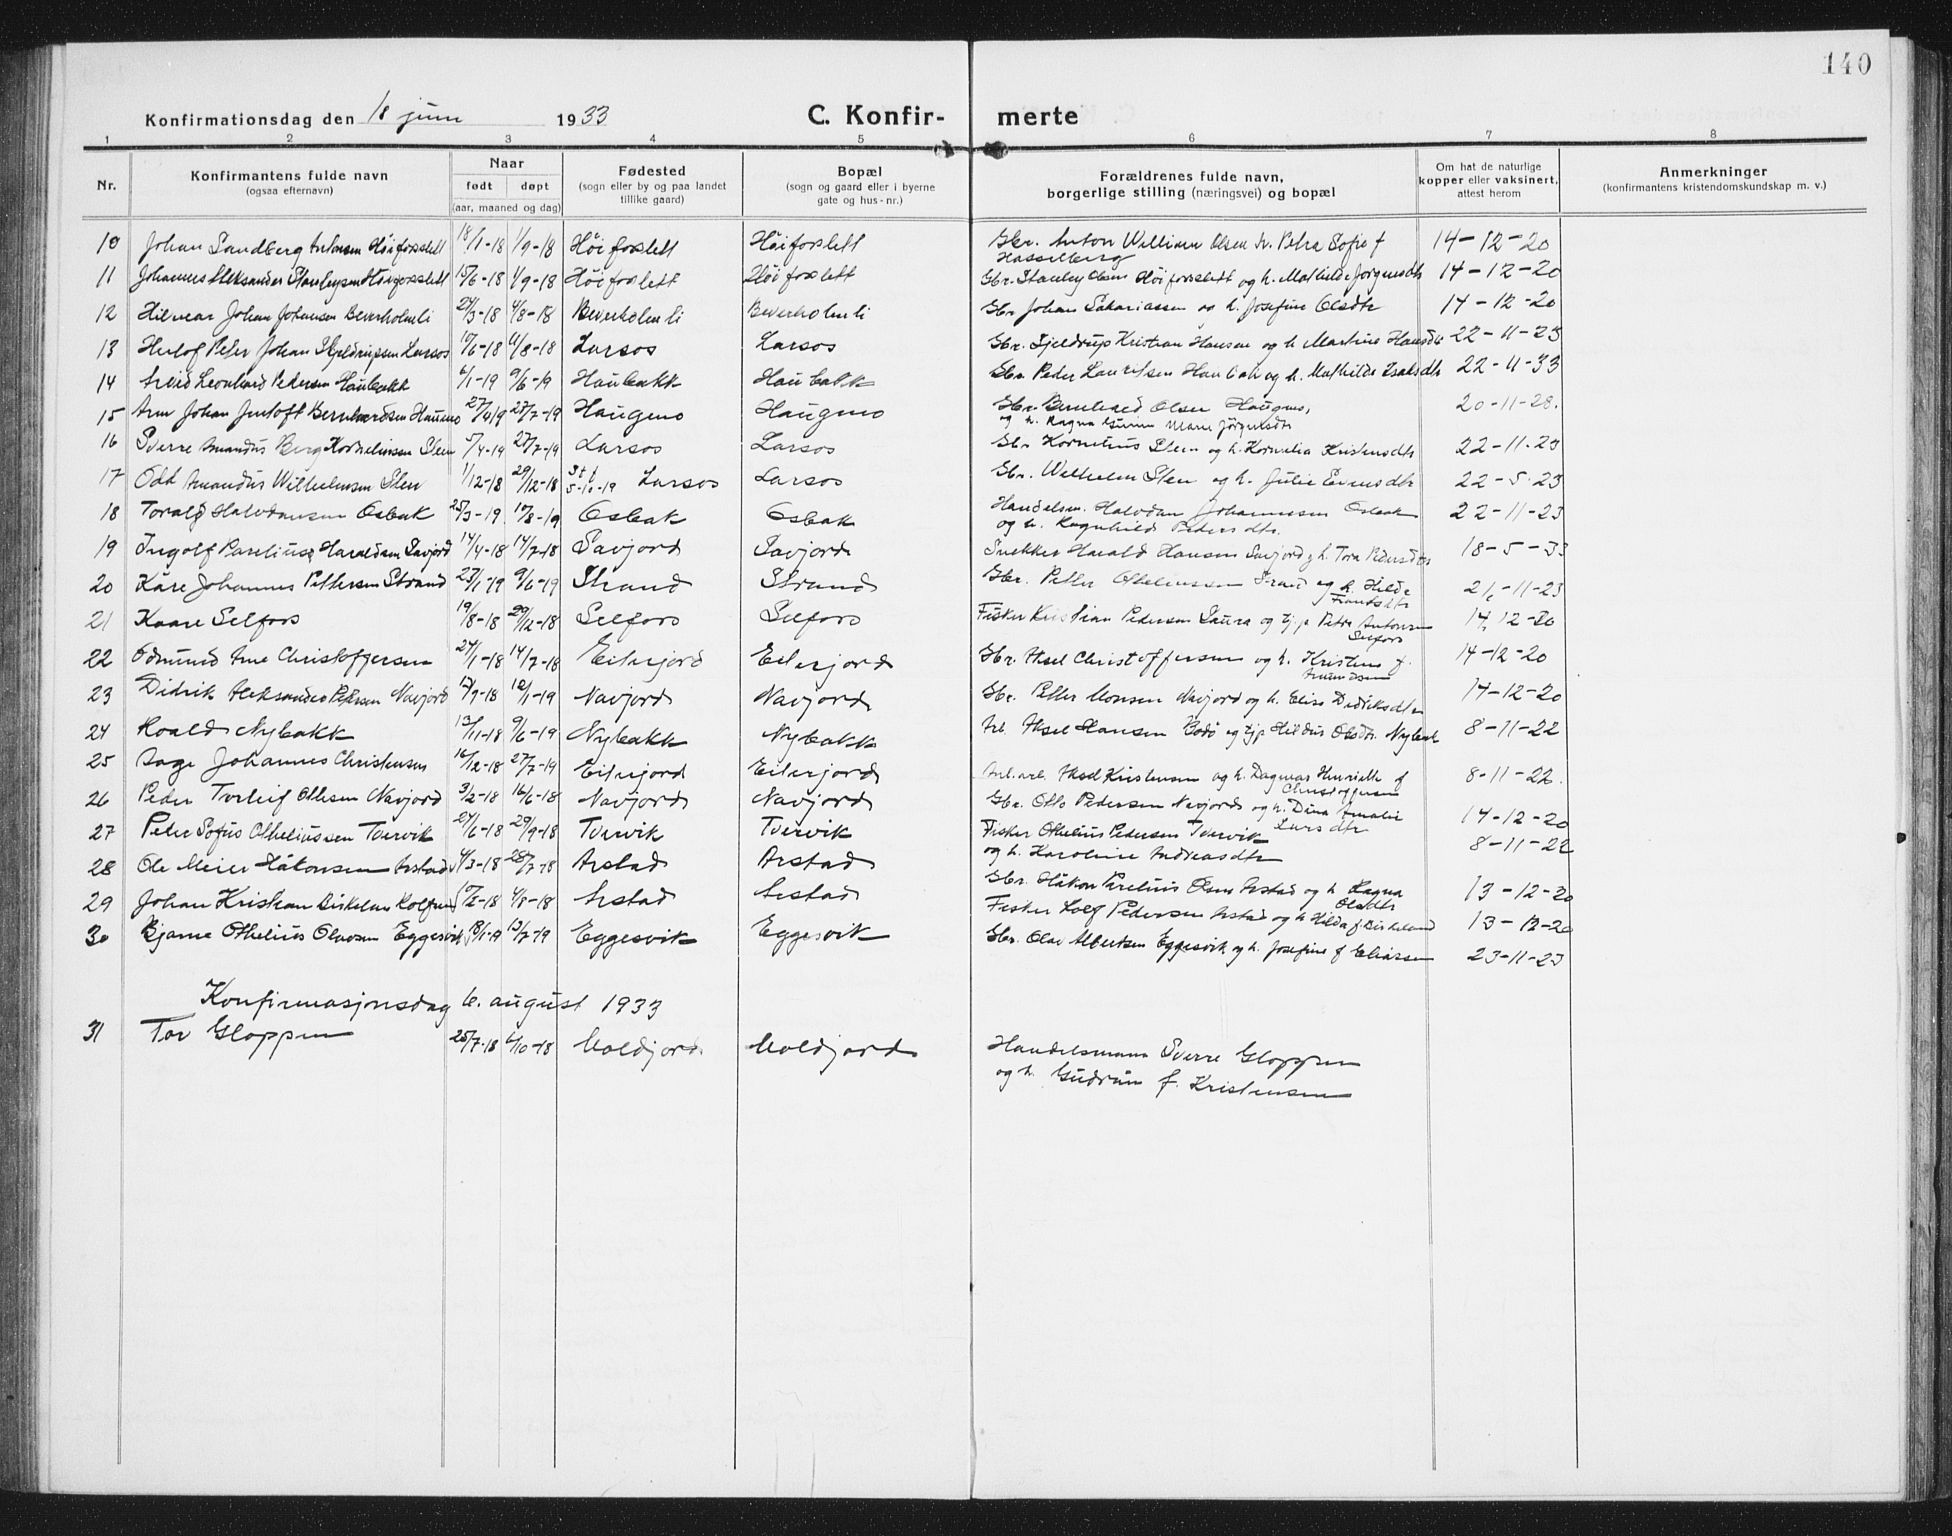 140
Konfirmationsdag den 18 juni 1933 C. Konfir- merte
1 2 3 4 5 6 7 8
Nr. Konfirmantens fulde navn (ogsaa efternavn) Naar født døpt (aar, maaned og dag) Fødested (sogn eller by og paa landet tillike gaard) Bopæl (sogn og gaard eller i byerne gate og hus-nr.) Forældrenes fulde navn, borgerlige stilling (næringsvei) og bopæl Om hat de naturlige kopper eller vaksinert, attest herom Anmerkninger (konfirmantens kristendomskundskap m. v.)
10 Johan Sandberg Antonsen Höiforslett 18/1-18 1/9-18 Höiforslett Höiforslett Gbr. Anton William Olsen h. Petra Sofie f Hasselberg 14-12-20
11 Johannes Aleksander Stanleysen Höiforslett 15/6-18 1/9-18 Höiforslett Höiforslett Gbr. Stanley Olsen Höiforslett og h. Mathilde Jörgensdtr 14-12-20
12 Hilmar Johan Johansen Beverholmli 24/3-18 4/8-18 Beverholmli Beverholmli Gbr Johan Sakariassen og h. Josefine Olsdtr 14-12-20
13 Herlof Peter Johan Skjeldrupsen Larsos 10/6-18 11/8-18 Larsos Larsos Gbr. Kristian Hansen og h Martine Hansdtr 22-11-23
14 Arvid Leonhard Pedersen Haubakk 6/1-19 9/6-19 Haubakk Haubakk Gbr Peder Lauritsen og h. Mathilde Isaksdtr 22-11-33
15 Arne Johan Bernhardsen Haugmo 27/4 19 27/7-19 Haugmo Haugmo Gbr. Bernhard Olsen Haugmo, og h. Ragna Marie Jörgensdtr 20-11-28.
16 Sverre Amandus Berg Korneliussen Sten 5/4-19 27/7-19 Larsos Larsos Gbr Kornelius Sten og h. Kornelia Kristensdtr 22-11-23
17 Odd Amandus Wilhelmsen Sten 1/12-18 29/12-18 5-10-19 Larsos Larsos Gbr. Wilhelm Sten og h. Julie 22-5-23
18 Torald Halvdansen Osbak 25/3-19. 10/8-19 Osbak Osbak Handelsm. Halvdan Johannessen Osbak og h. Ragnhild Pedersdtr. 22-11-23
19 Ingolf Pareliusz Haraldsen Savjord 14/4-18 14/7-18 Savjord Savjord Snekker Harald Hansen Savjord og h. Tora Pedersdtr 18-5-33
20 Kåre Johannes Pettersen Strand 23/1-19 9/6-19 Strand Strand Gbr. Petter Otheliussen Strand og h. Hilde Frantsdtr 21-11-23
21 Kaare Selfors 19/8-18 29/12-18 Selfors Selfors Fisker Kristian Pedersen og tjp. Petra Antonsen Selfors 14-12-20
22 Edmund Arne Christoffersen 27/1-18 14/7-18 Eiterjord Eiterjord Gbr. Aksel Christoffersen og h. Kristine f. Amundsen 14-12-20
23 Didrik Aleksander Petersen Navjord 17/9-18 12/1-19 Navjord Navjord Gbr. Petter Monsen Navjord og h. Elise Didriksdtr 14-12-20
24 Roald Nybakk 13/11-18 9/6-19 Nybakk Nybakk Arb. Aksel Hansen Bodö og tjp Hildur Olsdtr. Nybakk 8-11-22
25 Aage Johannes Christensen 16/12-18 27/7-19 Eiterjord Eiterjord Aksel Kristensen og h. Dagmar Henriette f Christoffersen 8-11-22.
26 Peder Torleif Ottesen Navjord 3/2-18 16/6-18 Navjord Navjord Gbr. Otto Pedersen Navjord og h. Dina Amalie Larsdtr 14-12-20
27 Peter Sofus Otheliussen Tvervik 27/6-18 29/9-18 Tvervik Tvervik Fisker Othelius Pedersen Tvervik og h. Karoline Andreasdtr 8-11-22
28 Ole Meier Håkonsen Arstad 4/3-18 28/7-18 Arstad Arstad Gbr. Håkon Parelius Olsen Arstad og h Ragna Olsdtr 13-12-20
29 Johan Kristian Birkelund 10/2-18 4/8-18 Arstad Arstad Fisker Pedersen Arstad og h Hilda f. Birkelund 13-12-20
30 Bjarne Othelius Olavsen Eggesvik 18/1-19 13/7-19 Eggesvik Eggesvik Gbr. Olav Albertsen Eggesvik og h. Josefine f Eliassen 23-11-23
Konfirmasjonsdag 6. august 1933
31 Tor Gloppen 25/7-18 6/10-18 Moldjord Moldjord Handelsmann Sverre Gloppen
og h. Gudrun f. Kristensen